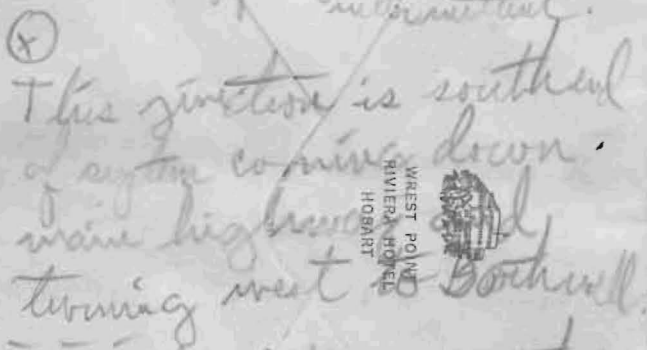 intermittent.
(x)
This junction is south end
of system coming down
main highway and
turning west to Bothwell.
WREST POINT
RIVIERA HOTEL
HOBART